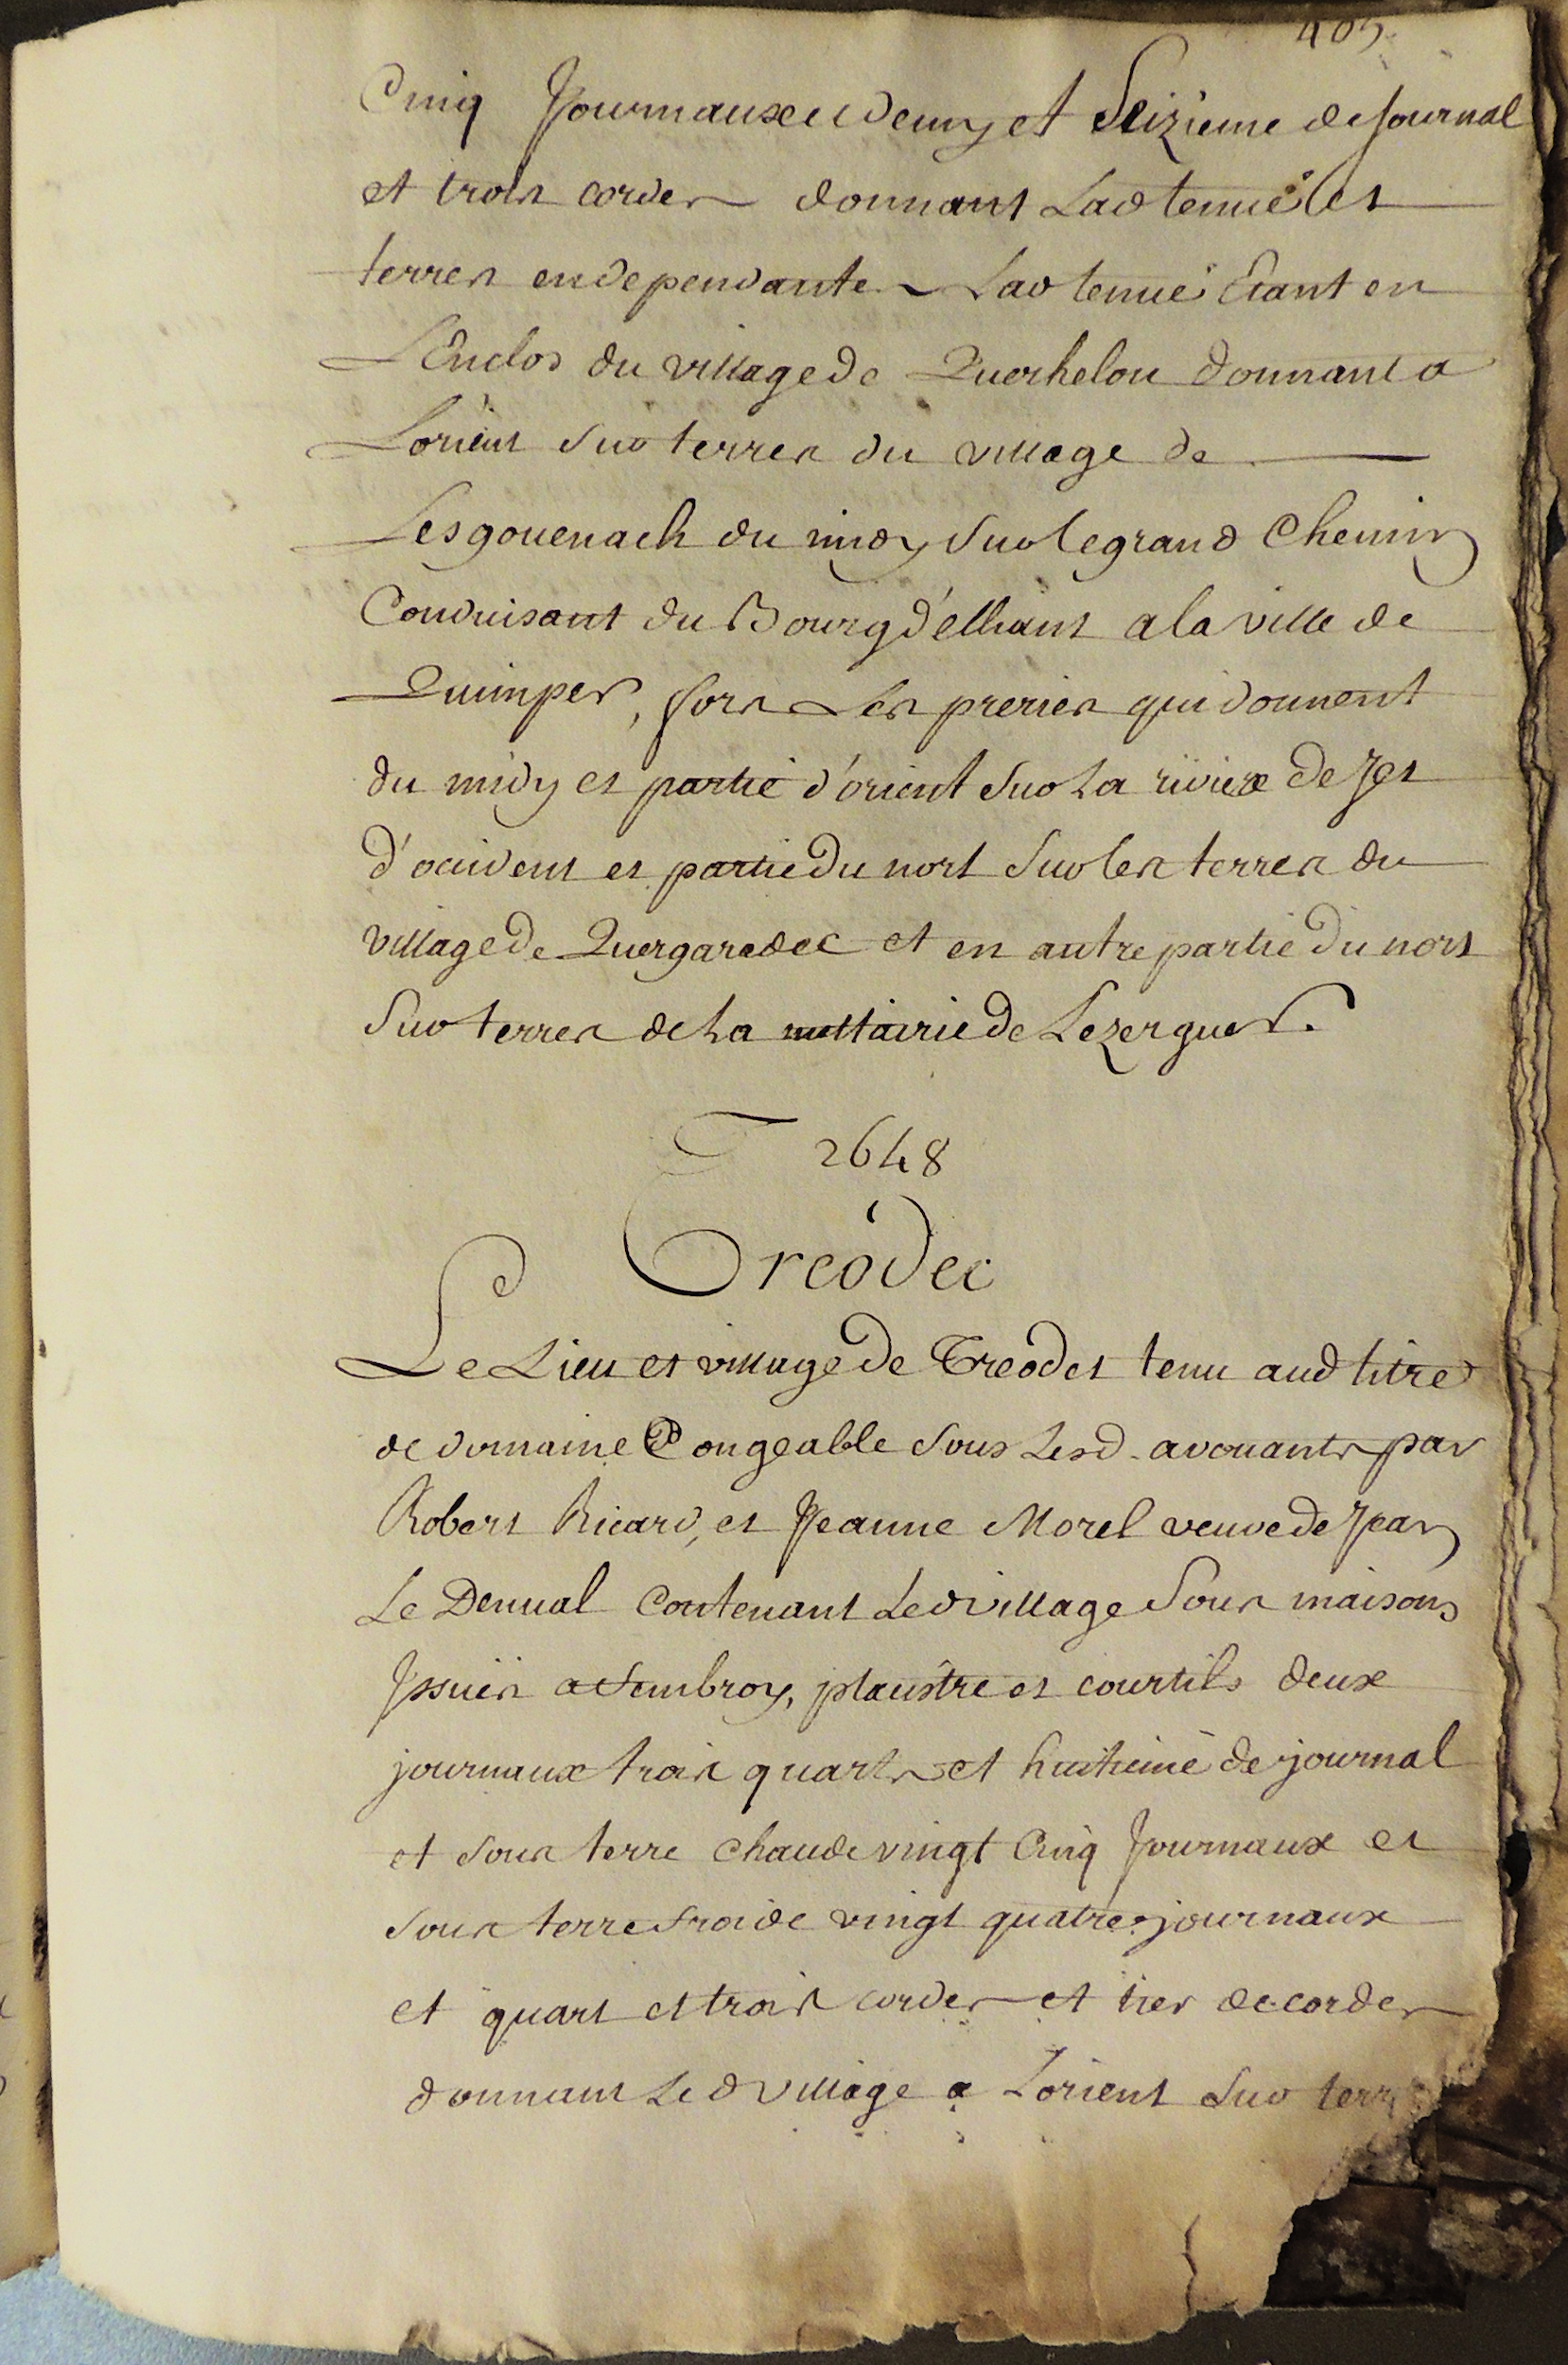 405
Cinq Journaux et demy et Seizieme de Journal
et trois cordes donnant Lad tenuë et
terres en dependante Lad tenuë Etant en
L'Enclos du village de Querhelou donnant a
Lorient sur terres du village de
Lesgouenach du midy sur le grand Chemin
Conduisant du Bourg d'elliant a la ville de
Quimper, fors Les preries qui donnent
du midy et partie d'orient sur La riviere de Jet
d'occident et partie du nort sur les terres du
village de Quergaredec et en autre partie du nort
sur terres de La mettairie de Lezerguer.
2648
Treodec
Le Lieu et village de Treodet tenu aud titre
de domaine Congeable sous Lesd. avouants par
Robert Ricard, et Jeanne Morel veuve de Jean
Le Denual Contenant Led village sous maisons
Jssuës a tembroy, plaustre et courtils deux
journaux trois quarts et huitieme de journal
et sous terre chaude vingt Cinq Journaux et
sous terre froide vingt quatre journaux
et quart et trois cordes et tier de cordes
donnant Led village a Lorient sur